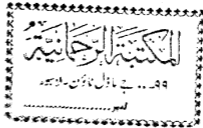 المكتبة الرحمانية
۹۹۔۔۔ جے ماڈل ٹاؤن ۔ لاہور
نمبر